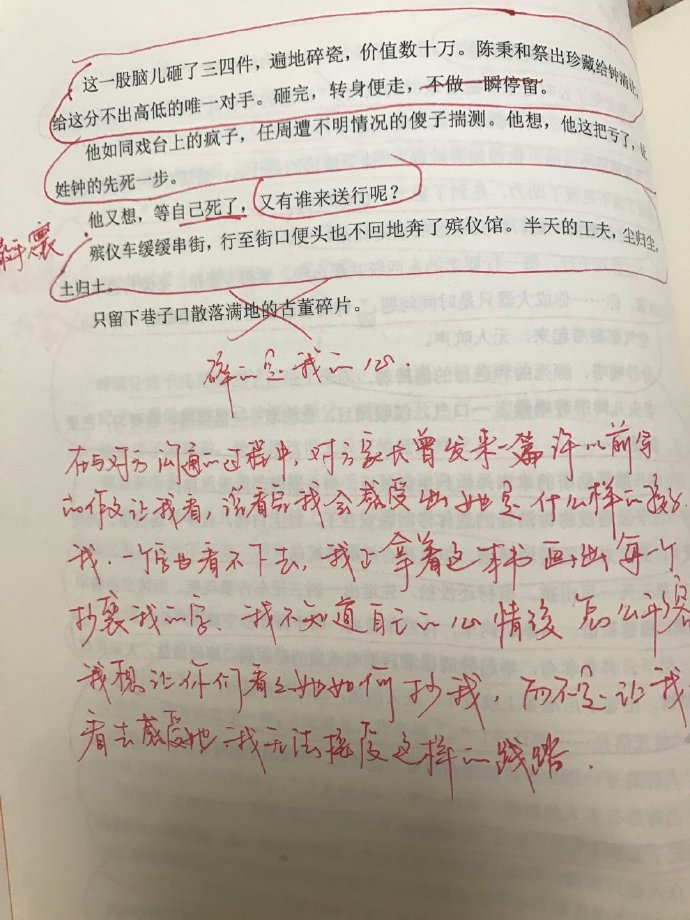 这一股脑儿砸了三四件，遍地碎瓷，价值数十万。陈秉和祭出珍藏给钟满
给这分不出高低的唯一对手。砸完，转身便走，不做一瞬停留。
他如同戏台上的疯子，任周遭不明情况的傻子揣测。他想，他这把亏了，让
姓钟的先死一步。
他又想，等自己死了，又有谁来送行呢？
殡仪车缓缓串街，行至街口便头也不回地奔了殡仪馆。半天的工夫，尘归尘，
土归土。
只留下巷子口散落满地的古董碎片。
碎的是我的心.
在与对方沟通的过程中，对方家长曾发来一篇许以前写
的作文让我看，说看后我会感受出她是什么样的孩子.
我.一个字也看不下去，我只拿着这本书画出每一个
抄袭我的字.我不知道自己的心情该怎么平复
我想让你们看看她如何抄我，而不是让我
看去感受她.我无法接受这样的践踏.